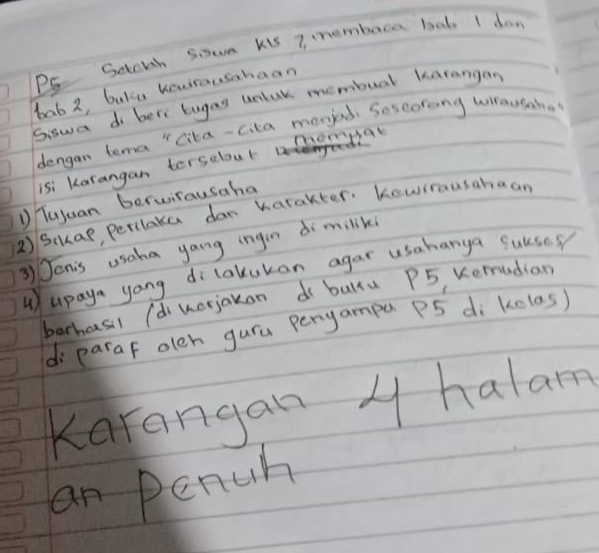 P5 Setelah siswa kls 7, membaca bab 1 dan
bab 2, buku kewirausahaan
siswa di beri tugas untuk membuat karangan
dengan tema "Cita-cita menjadi seseorang wirausaha"
isi karangan tersebut memuat
1) Tujuan berwirausaha
2) Sikap, perilaku dan karakter. kewirausahaan
3) Jenis usaha yang ingin di miliki
4) upaya yang di lakukan agar usahanya sukses/
berhasil (di kerjakan di buku P5, kemudian
di paraf oleh guru penyampu P5 di kelas)
Karangan 4 halam
an penuh